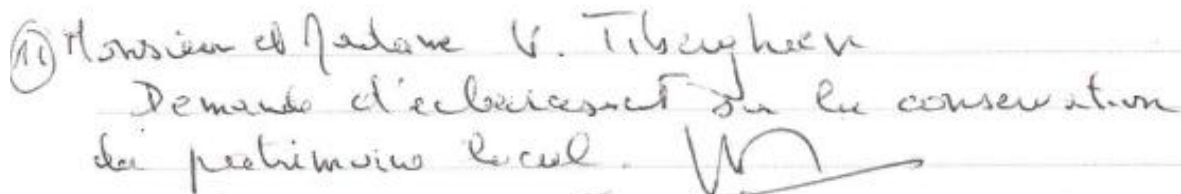 (11) Monsieur et Madame V. Tiberghien
Demande d'eclaircissement sur la conservation
du patrimoine local.